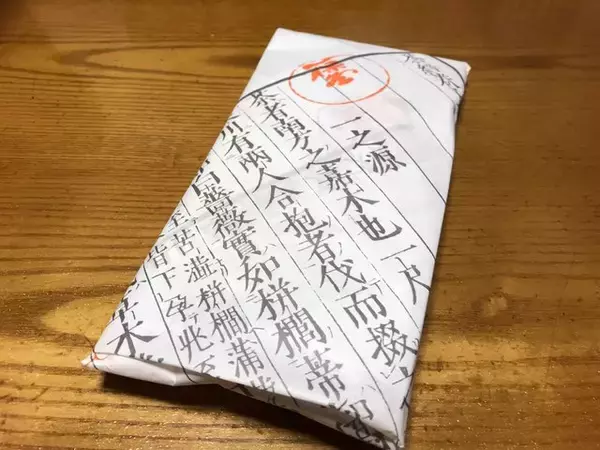 一之源
茶者南方之嘉木也一尺
川有兩人合抱者伐而掇
白薔薇實如栟櫚蒂
至苦澁栟櫚蒲
皆下孕兆至
木